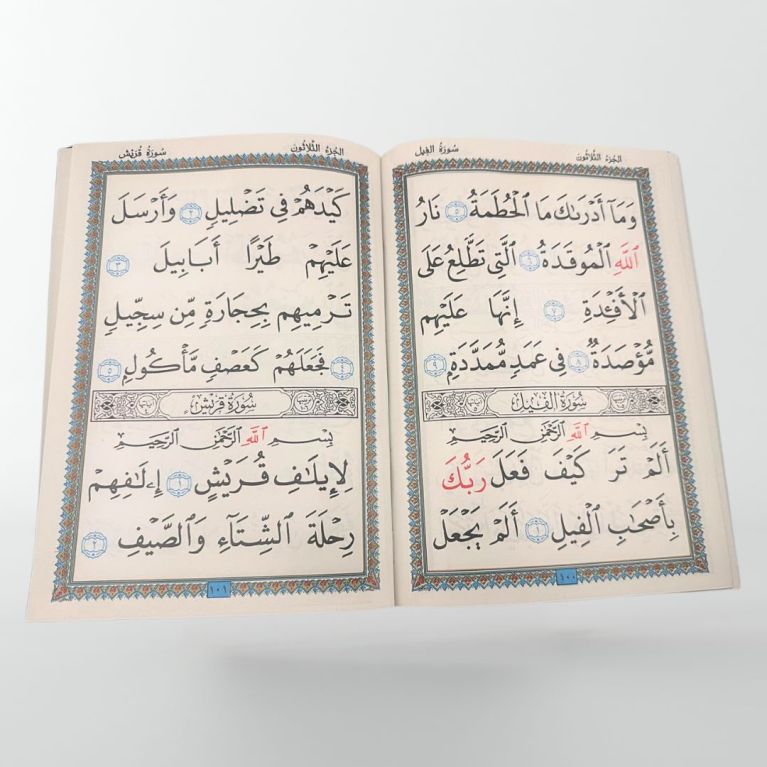 سُورَةُ الفِيل
الجُزءُ الثَّلَاثُونَ
وَمَآ أَدۡرَىٰكَ مَا ٱلۡحُطَمَةُ ٥ نَارُ
ٱللَّهِ ٱلۡمُوقَدَةُ ٦ ٱلَّتِي تَطَّلِعُ عَلَى
ٱلۡأَفۡـِٔدَةِ ٧ إِنَّهَا عَلَيۡهِم
مُّؤۡصَدَةٌ ٨ فِي عَمَدٖ مُّمَدَّدَةِۭ ٩
سُورَةُ الفِيل
بِسۡمِ ٱللَّهِ ٱلرَّحۡمَٰنِ ٱلرَّحِيمِ
أَلَمۡ تَرَ كَيۡفَ فَعَلَ رَبُّكَ
بِأَصۡحَٰبِ ٱلۡفِيلِ ١ أَلَمۡ يَجۡعَلۡ
١٠٠
سُورَةُ قُرَيْش
الجُزءُ الثَّلَاثُونَ
كَيۡدَهُمۡ فِي تَضۡلِيلٖ ٢ وَأَرۡسَلَ
عَلَيۡهِمۡ طَيۡرًا أَبَابِيلَ ٣
تَرۡمِيهِم بِحِجَارَةٖ مِّن سِجِّيلٖ
٤ فَجَعَلَهُمۡ كَعَصۡفٖ مَّأۡكُولِۭ ٥
سُورَةُ قُرَيْشٍ
بِسۡمِ ٱللَّهِ ٱلرَّحۡمَٰنِ ٱلرَّحِيمِ
لِإِيلَٰفِ قُرَيۡشٍ ١ إِۦلَٰفِهِمۡ
رِحۡلَةَ ٱلشِّتَآءِ وَٱلصَّيۡفِ ٢
١٠١